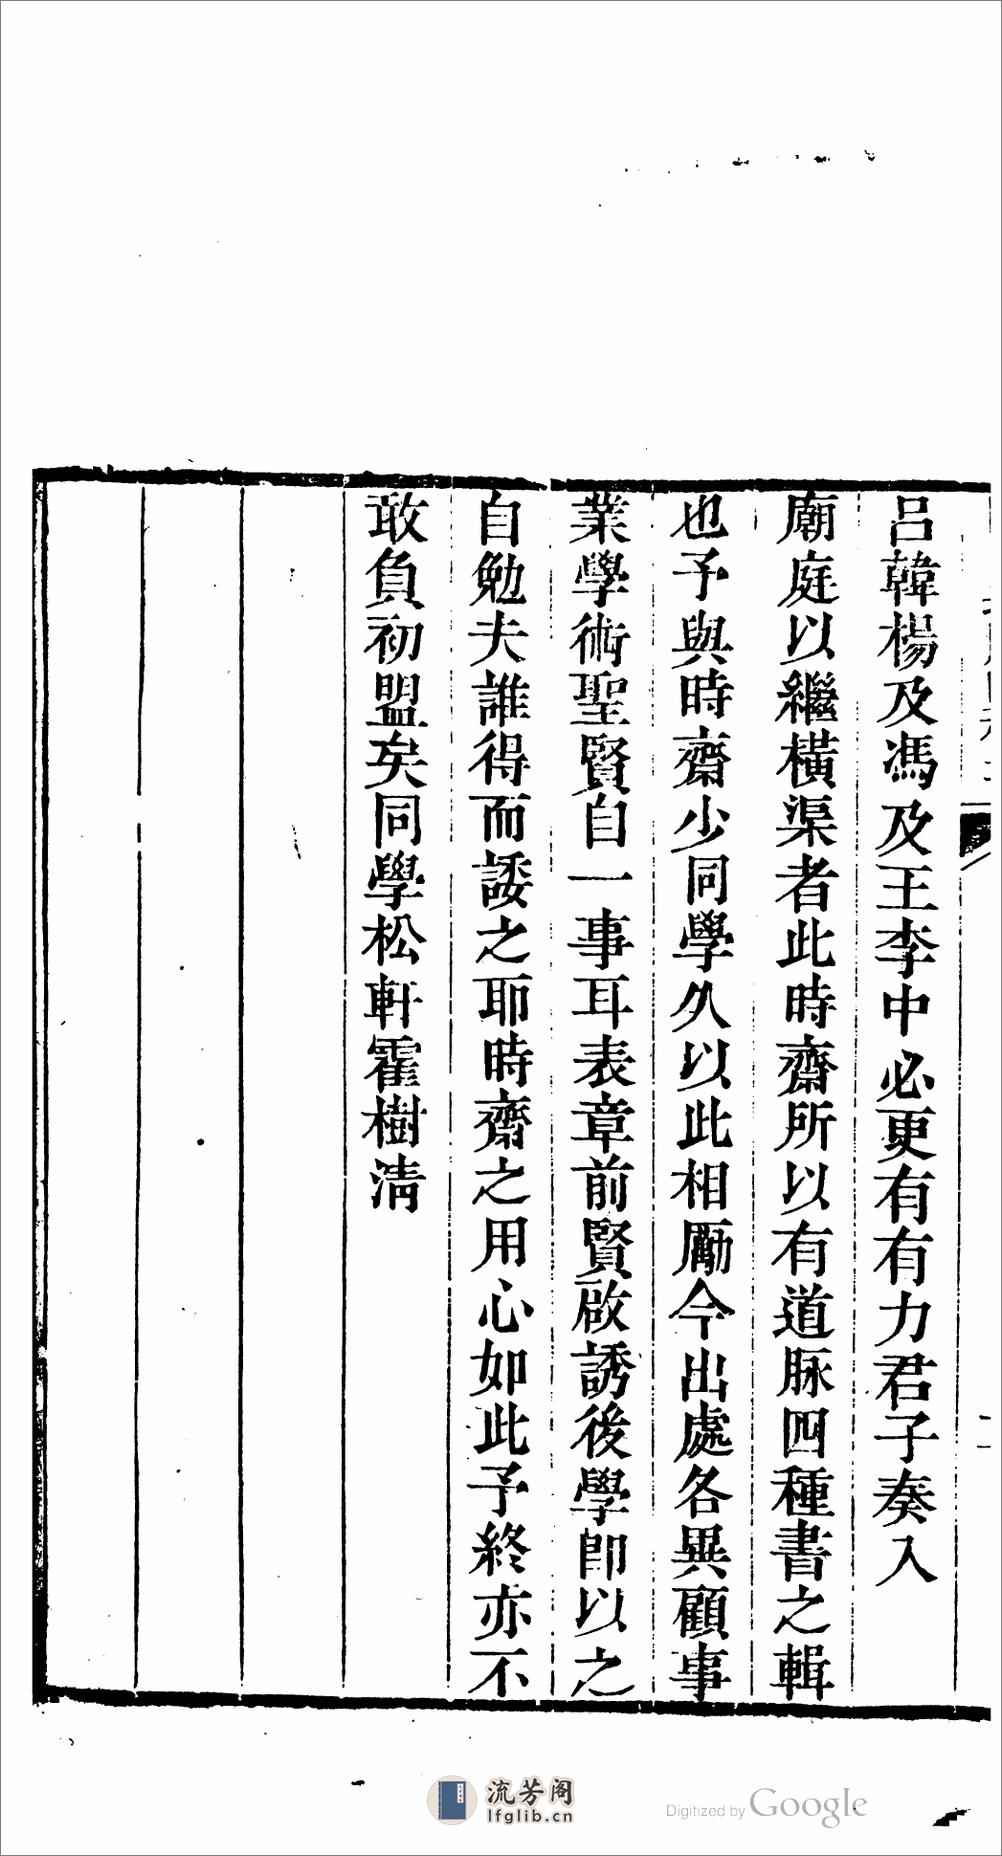 呂韓楊及馮及王李中必更有有力君子奏入
廟庭以繼橫渠者此時齋所以有道脉四種書之輯
也予與時齋少同學久以此相勵今出處各異顧事
業學術聖賢自一事耳表章前賢啟誘後學卽以之
自勉夫誰得而諉之耶時齋之用心如此予終亦不
敢負初盟矣同學松軒霍樹淸
流芳阁
lfglib.cn
Digitized by Google